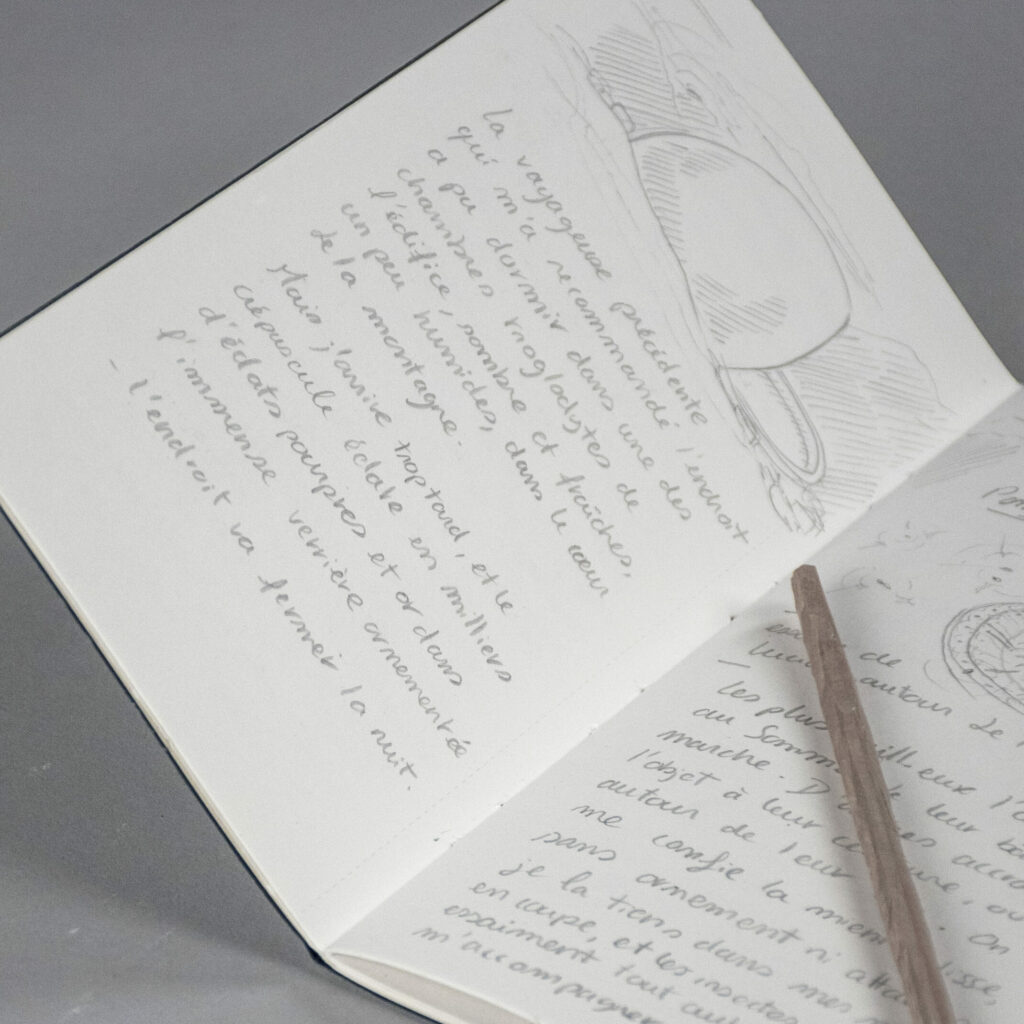 La voyageuse précédente
qui m'a recommandé l'endroit
a pu dormir dans une des
chambres troglodytes de
l'édifice, sombre et fraîches,
un peu humides, dans le cœur
de la montagne.
Mais j'arrive trop tard, et le
crépuscule éclate en milliers
d'éclats pourpres et or dans
l'immense verrière ornementée
- l'endroit va fermer la nuit.
de
autour de
Les plus
au Somm leur
marche.
l'objet à leur
autour de leur
me confie la mien . On
sans ornement ni lisse,
je la tiens dans mes
en coupe, et les insectes
essaiment tout
m'accompagner